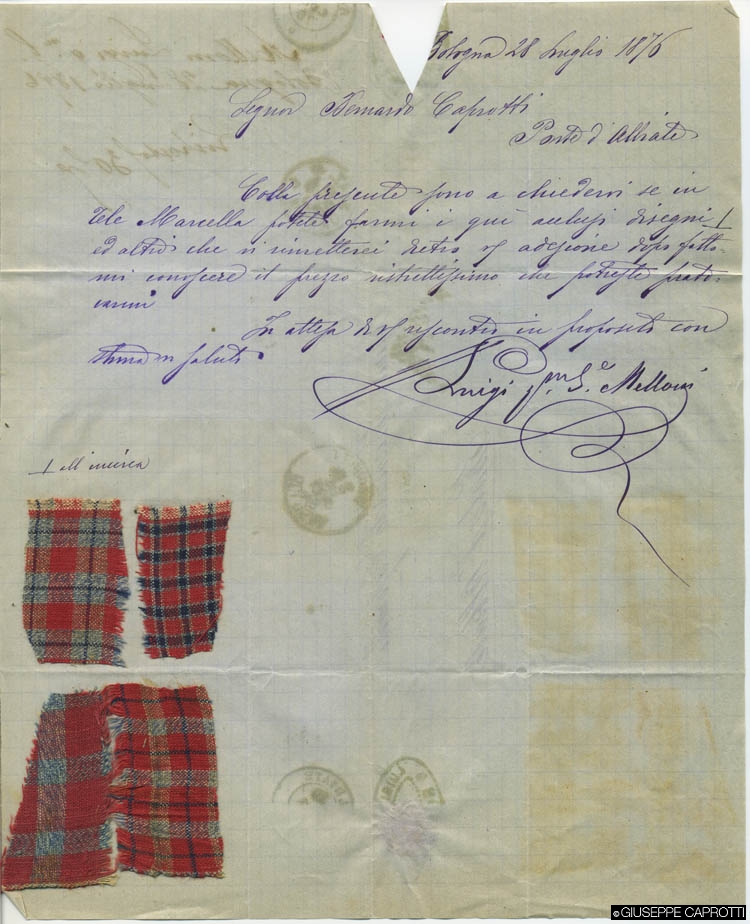 Bologna 28 Luglio 1876
Signor Bernardo Caprotti
Ponte d'Albiate
Colla presente sono a chiedervi se in
tele Marcella potete farmi i quì acclusi disegni
ed altri che vi rimetterei dietro vs adesione dopo fatto-
mi conoscere il prezzo ristrettissimo che potreste prati-
carmi
In attesa di vs riscontro in proposito con
stima vi saluto
Luigi Melloni
©GIUSEPPE CAPROTTI